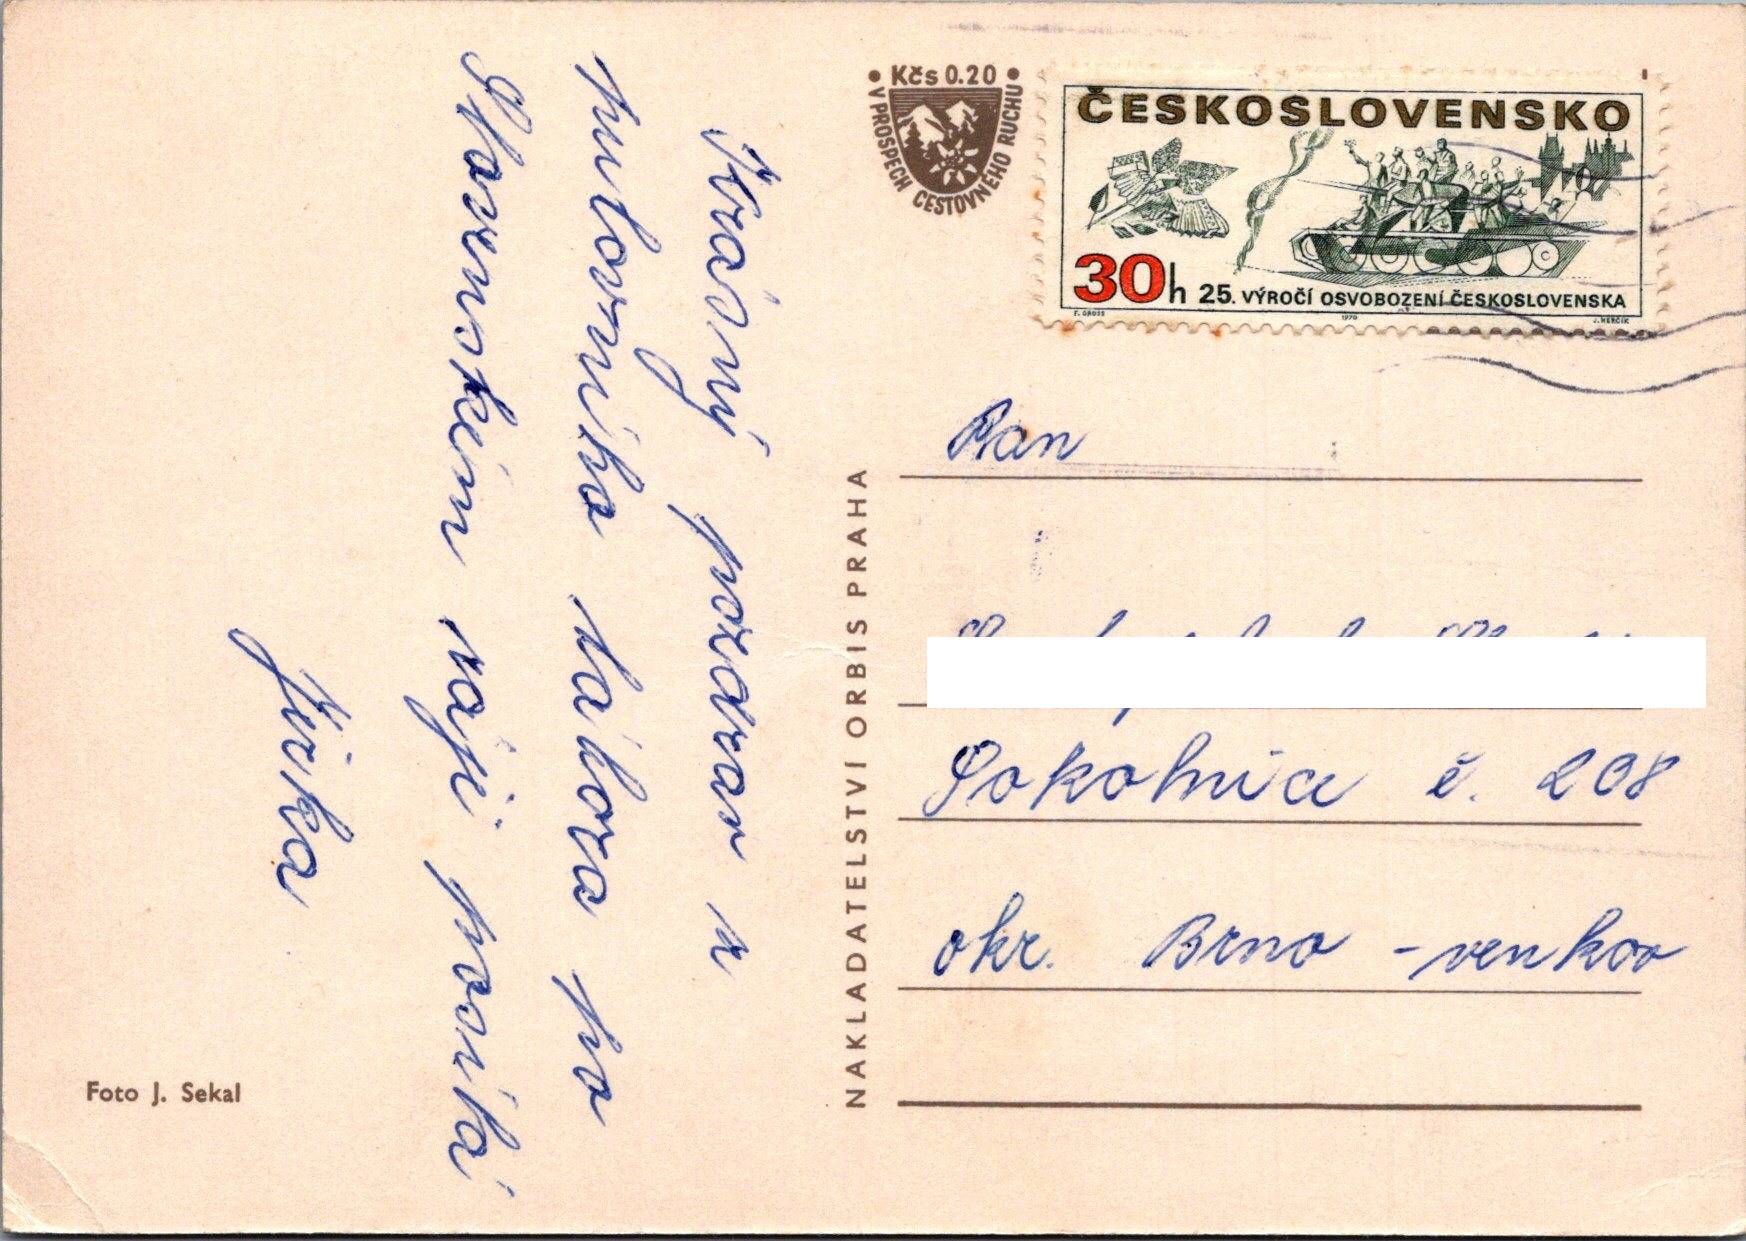 Krásný pozdrav z
putovního tábora po
Slovenském ráji posílá
Jirka
Foto J. Sekal
NAKLADATELSTVÍ ORBIS PRAHA
• Kčs 0.20 •
V PROSPĚCH CESTOVNÉHO RUCHU
ČESKOSLOVENSKO
30h 25. VÝROČÍ OSVOBOZENÍ ČESKOSLOVENSKA
F. GROSS 1970 J. HERČÍK
Pan
Sokolnice č. 208
okr. Brno - venkov